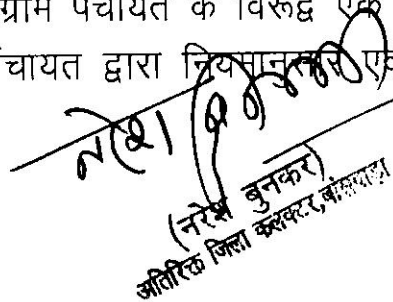 ग्राम पंचायत के विरूद्ध एक
चायत द्वारा नियमानुसार एव
नरेश
(नरेश बुनकर)
अतिरिक्त जिला कलक्टर, बांसवाड़ा